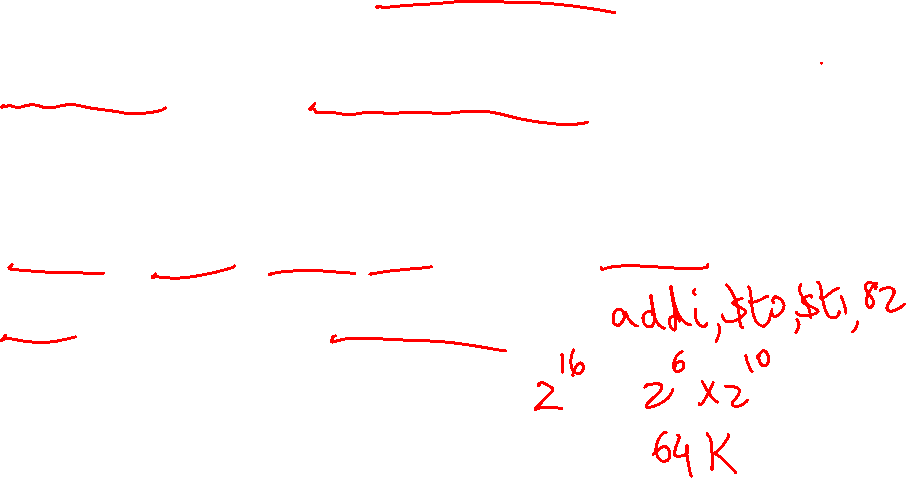 addi, $t0, $t1, 82
2^16 2^6 x 2^10
64 K